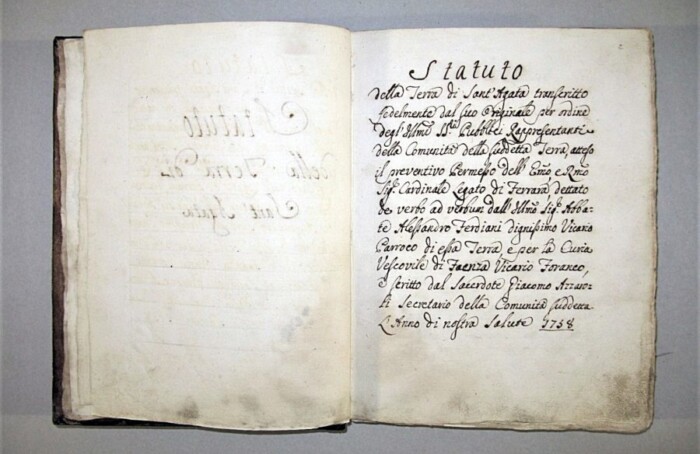 Statuto
Della Terra di
Sant' Agata
2
Statuto
della Terra di Sant' Agata transcritto
fedelmente dal suo Originale per ordine
degl' Illmi Sig.ri Pubblici Rappresentanti
della Comunità della suddetta Terra, atteso
il preventivo Permesso dell' Emo, e Rmo
Sig.r Cardinale Legato di Ferrara, dettato
de verbo ad verbum dall' Illmo Sig.r Abba-
te Alessandro Ferdiani dignissimo Vicario
Parroco di essa Terra, e per la Curia
Vescovile di Faenza Vicario Foraneo,
e scritto dal Sacerdote Giacomo
Secretario della Comunità suddetta
L'Anno di nostra Salute 1758